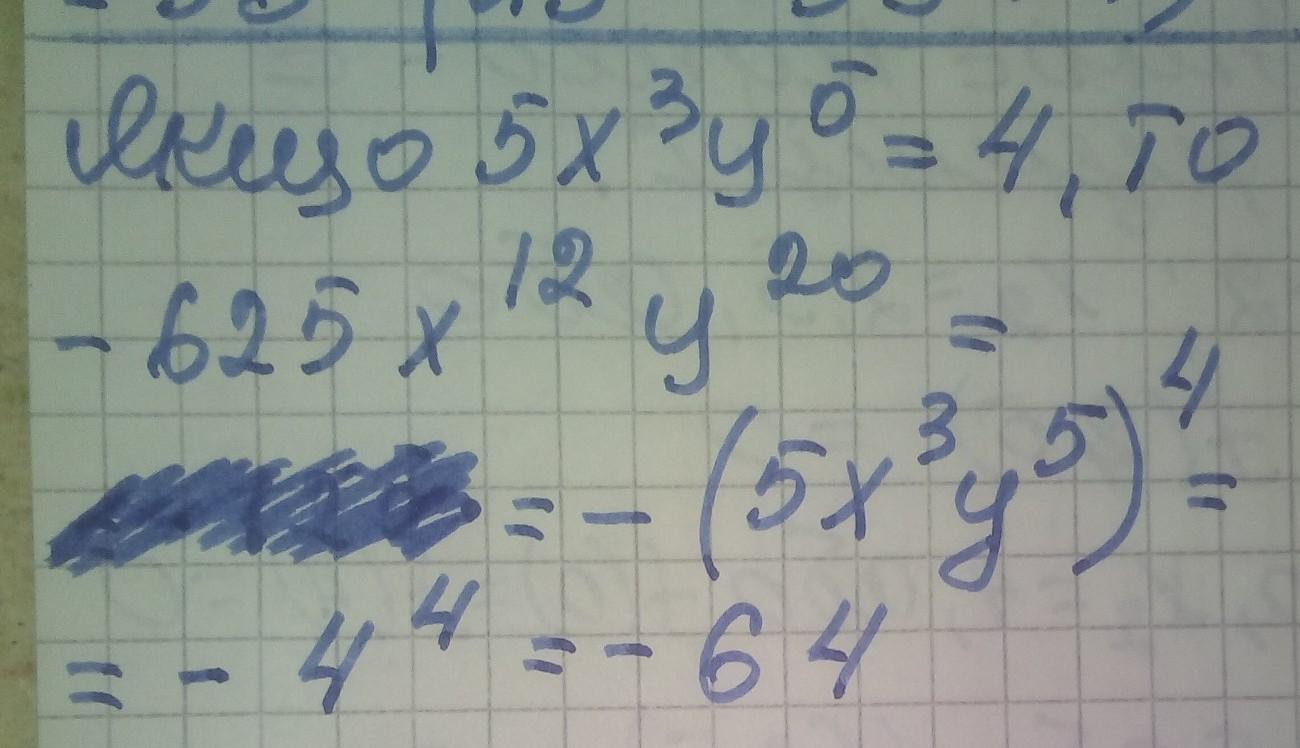 Якщо 5x³y⁵ = 4, то
- 625 x¹² y²⁰ =
= - (5x³y⁵)⁴ =
= - 4⁴ = - 64